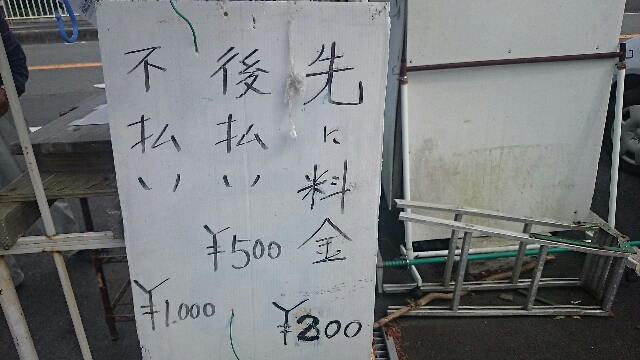 先に料金
¥200
後払い
¥500
不払い
¥1.000